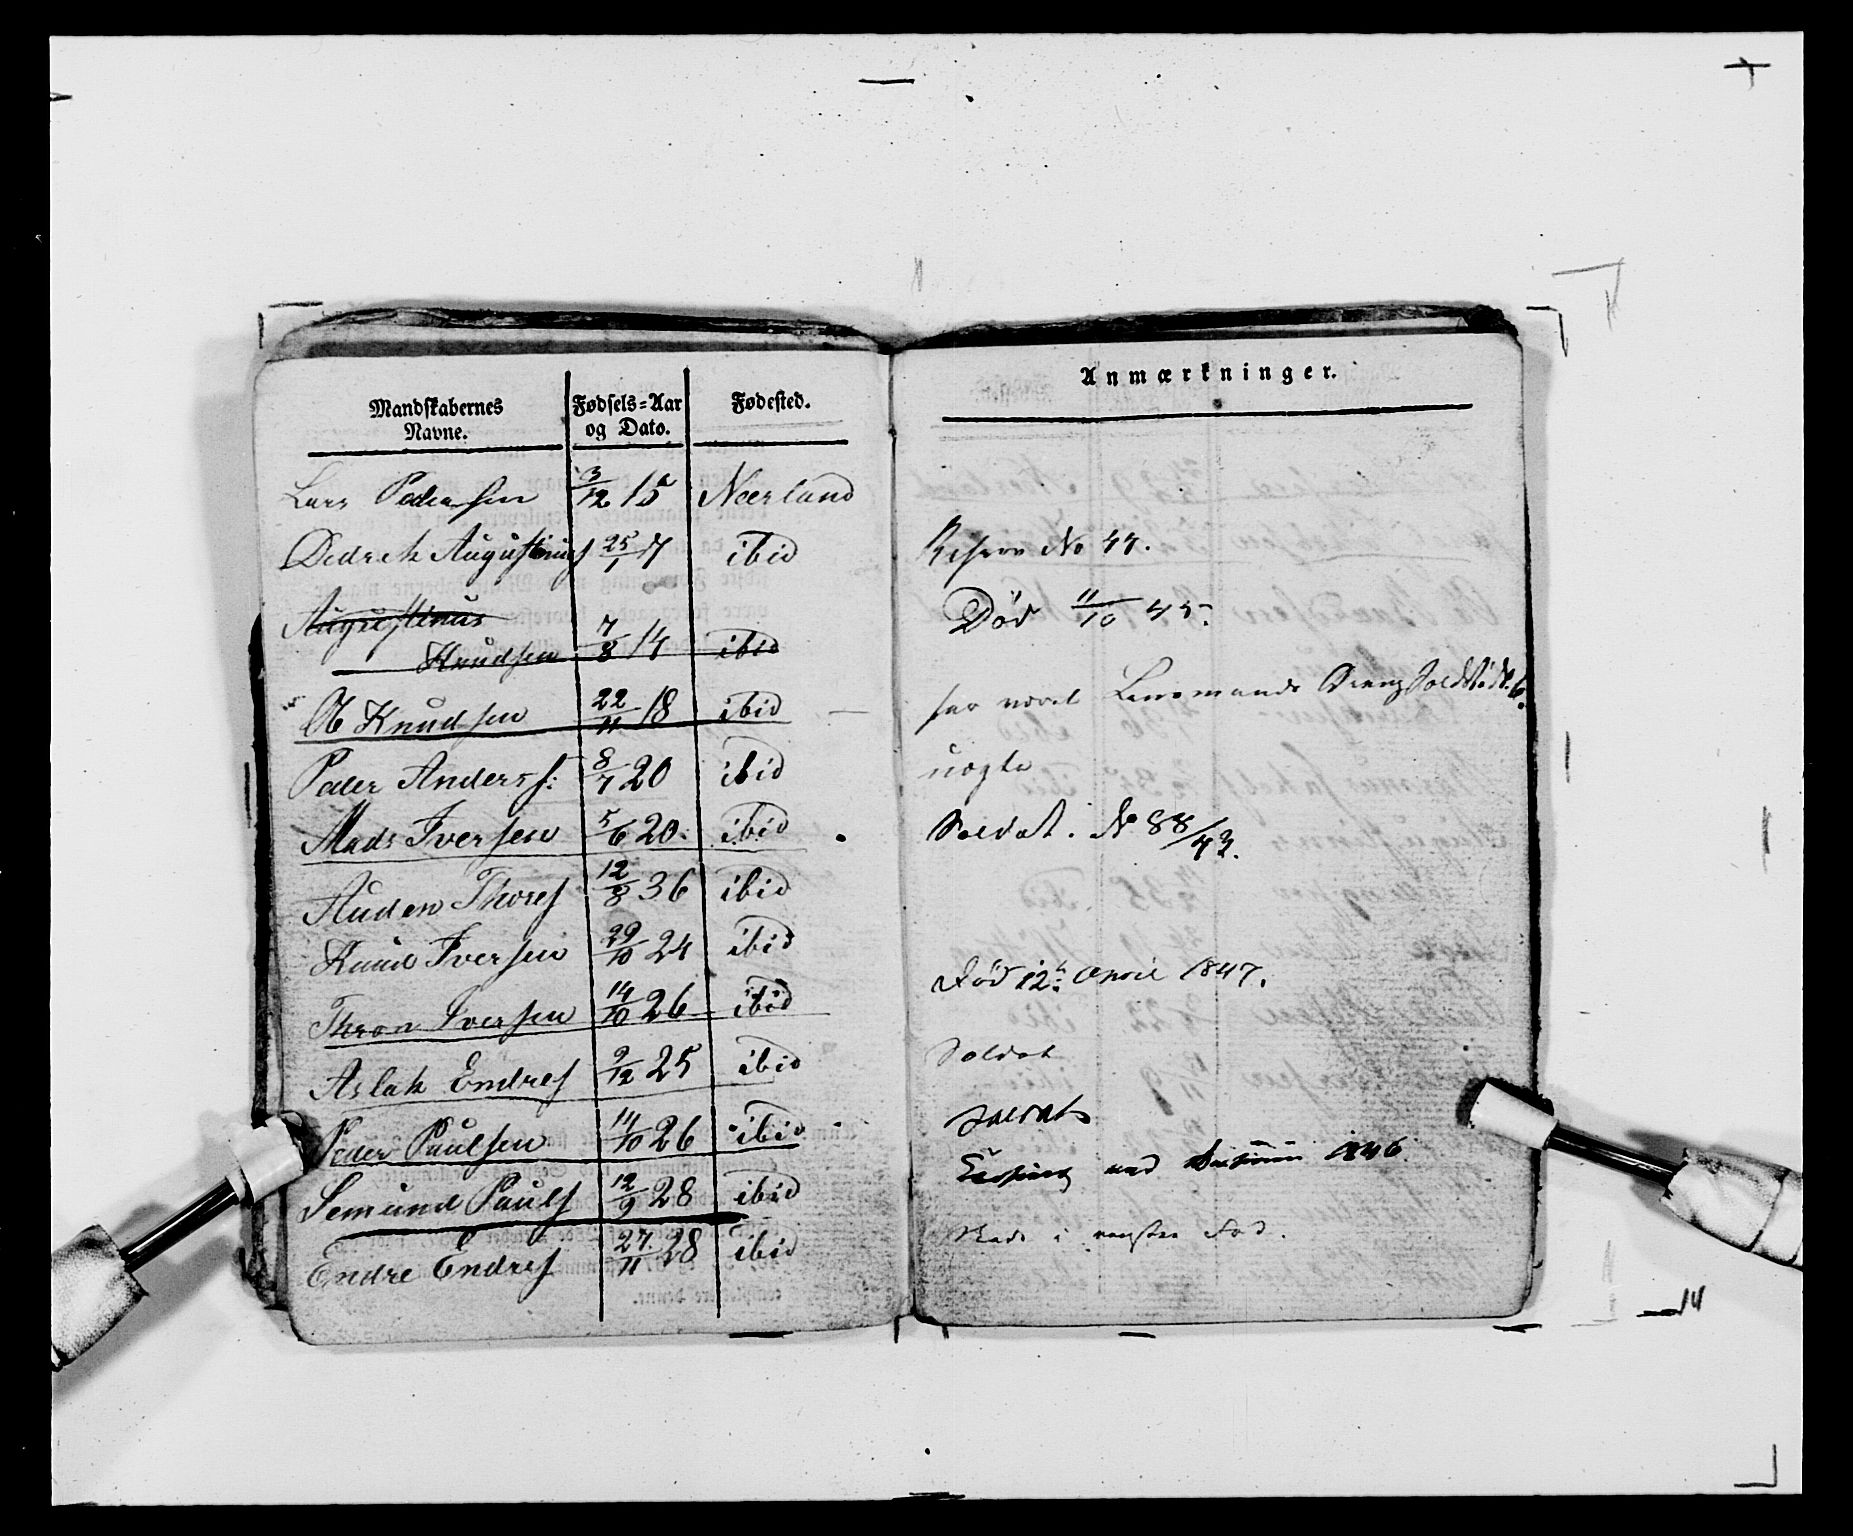 Mandskabernes
Navne.
Fødsels-Aar
og Dato.
Fødested.
Lars Pedersen 3/12 15 Neerland
Didrek Augustinus 25/1 7 ibid
Augustinus
Knudsen 7/8 14 ibid
Ol Knudsen 22/11 18 ibid
Peder Anders: 8/7 20 ibid
Mads Iversen 5/6 20 ibid
Auden Thores 12/8 36 ibid
Knud Iversen 29/10 24 ibid
Thron Iversen 14/10 26 ibid
Aslak Endres 9/12 25 ibid
Peder Paulsen 14/10 26 ibid
Semund Pauls 12/9 28 ibid
Endre Endres 27/11 28 ibid
Anmærkninger.
Reserv No 44.
Død 11/10 45.
har været Lensmands Dreng
Soldat. No 88/43.
Død 12te April 1847.
Soldat
Soldat
1846
Skade i venstre Fod.
14